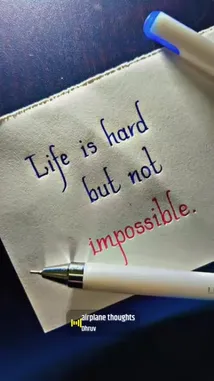 Life is hard
but not
impossible.
airplane thoughts
dhruv